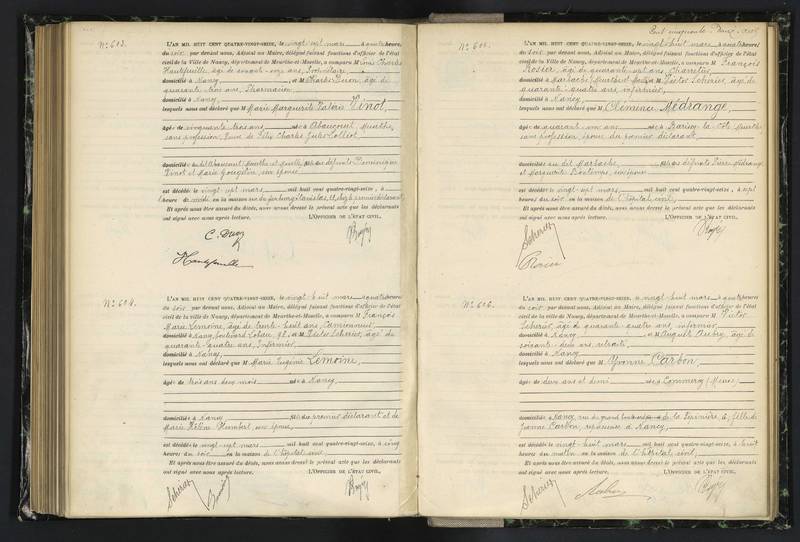 N° 603.
L'AN MIL HUIT CENT QUATRE-VINGT-SEIZE, le vingt sept mars à quatre heures
du soir par devant nous, Adjoint au Maire, délégué faisant fonctions d'officier de l'état
civil de la Ville de Nancy, département de Meurthe-et-Moselle, a comparu M Louis Charles
Hautefeuille, âgé de ans, Propriétaire
domicilié à Nancy, et M Charles âgé de
quarante trois ans, Pharmacien
domicilié à Nancy
lesquels nous ont déclaré que M Marie Marguerite Valérie Vinot,
âgé e de cinquante trois ans né e à Abaucourt Meurthe,
sans profession, Veuve de Félix Charles Jules
domicilié e au dit Abaucourt Meurthe et Moselle, fille des défunts Dominique
Vinot et Marie Gougelin, son épouse
est décédé e le vingt sept mars mil huit cent quatre-vingt-seize, à
heure de midi en la maison rue du faubourg Stanislas, chez le premier déclarant
Et après nous être assuré du décès, nous avons dressé le présent acte que les déclarants
ont signé avec nous après lecture. L'OFFICIER DE L'ÉTAT CIVIL,
Hautefeuille
N° 604.
L'AN MIL HUIT CENT QUATRE-VINGT-SEIZE, le vingt huit mars à quatre heures
du soir par devant nous, Adjoint au Maire, délégué faisant fonctions d'officier de l'état
civil de la ville de Nancy, département de Meurthe-et-Moselle, a comparu M François
Marie Lemoine, âgé de trente huit ans, Camionneur
domicilié à Nancy, boulevard Lobau, et M Victor Scherier, âgé de
quarante quatre ans, Infirmier
domicilié à Nancy,
lesquels nous ont déclaré que M Marie Eugénie Lemoine,
âgé e de trois ans deux mois né e à Nancy,
domicilié e à Nancy, fille du premier déclarant et de
Marie Hélène Humbert, son épouse,
est décédé e le vingt sept mars mil huit cent quatre-vingt-seize, à cinq
heures du soir en la maison de l'hôpital civil
Et après nous être assuré du décès, nous avons dressé le présent acte que les déclarants
ont signé avec nous après lecture. L'OFFICIER DE L'ÉTAT CIVIL,
N° 605.
L'AN MIL HUIT CENT QUATRE-VINGT-SEIZE, le vingt huit mars à quatre heures
du soir par devant nous, Adjoint au Maire, délégué faisant fonctions d'officier de l'état
civil de la ville de Nancy, département de Meurthe-et-Moselle, a comparu M François
Rosier, âgé de quarante sept ans, Charretier
domicilié à Marbache (Meurthe et Moselle) et M Victor Scherier, âgé de
quarante quatre ans, infirmier,
domicilié à Nancy
lesquels nous ont déclaré que M Clémence Médrange,
âgé e de quarante ans né e à Barisey la Côte Meurthe
sans profession, épouse du premier déclarant,
domicilié e au dit Marbache, fille des défunts Pierre Médrange
et Marguerite son épouse
est décédé e le vingt sept mars mil huit cent quatre-vingt-seize, à sept
heures du soir en la maison de l'hôpital civil,
Et après nous être assuré du décès, nous avons dressé le présent acte que les déclarants
ont signé avec nous après lecture. L'OFFICIER DE L'ÉTAT CIVIL,
Rosier
N° 606.
L'AN MIL HUIT CENT QUATRE-VINGT-SEIZE, le vingt huit mars à quatre heures
du soir par devant nous, Adjoint au Maire, délégué faisant fonctions d'officier de l'état
civil de la ville de Nancy, département de Meurthe-et-Moselle, a comparu M Victor
Scherier, âgé de quarante quatre ans, infirmier
domicilié à Nancy et M Auguste Aubry, âgé de
soixante deux ans, retraité
domicilié à Nancy
lesquels nous ont déclaré que M Yvonne Carbon,
âgé e de deux ans et demi né e à Commercy (Meuse)
domicilié e à Nancy, rue de la Pépinière, fille de
Jeanne Carbon, repasseuse à Nancy,
est décédé e le vingt huit mars mil huit cent quatre-vingt-seize, à huit
heures du matin en la maison de l'hôpital civil,
Et après nous être assuré du décès, nous avons dressé le présent acte que les déclarants
ont signé avec nous après lecture. L'OFFICIER DE L'ÉTAT CIVIL,